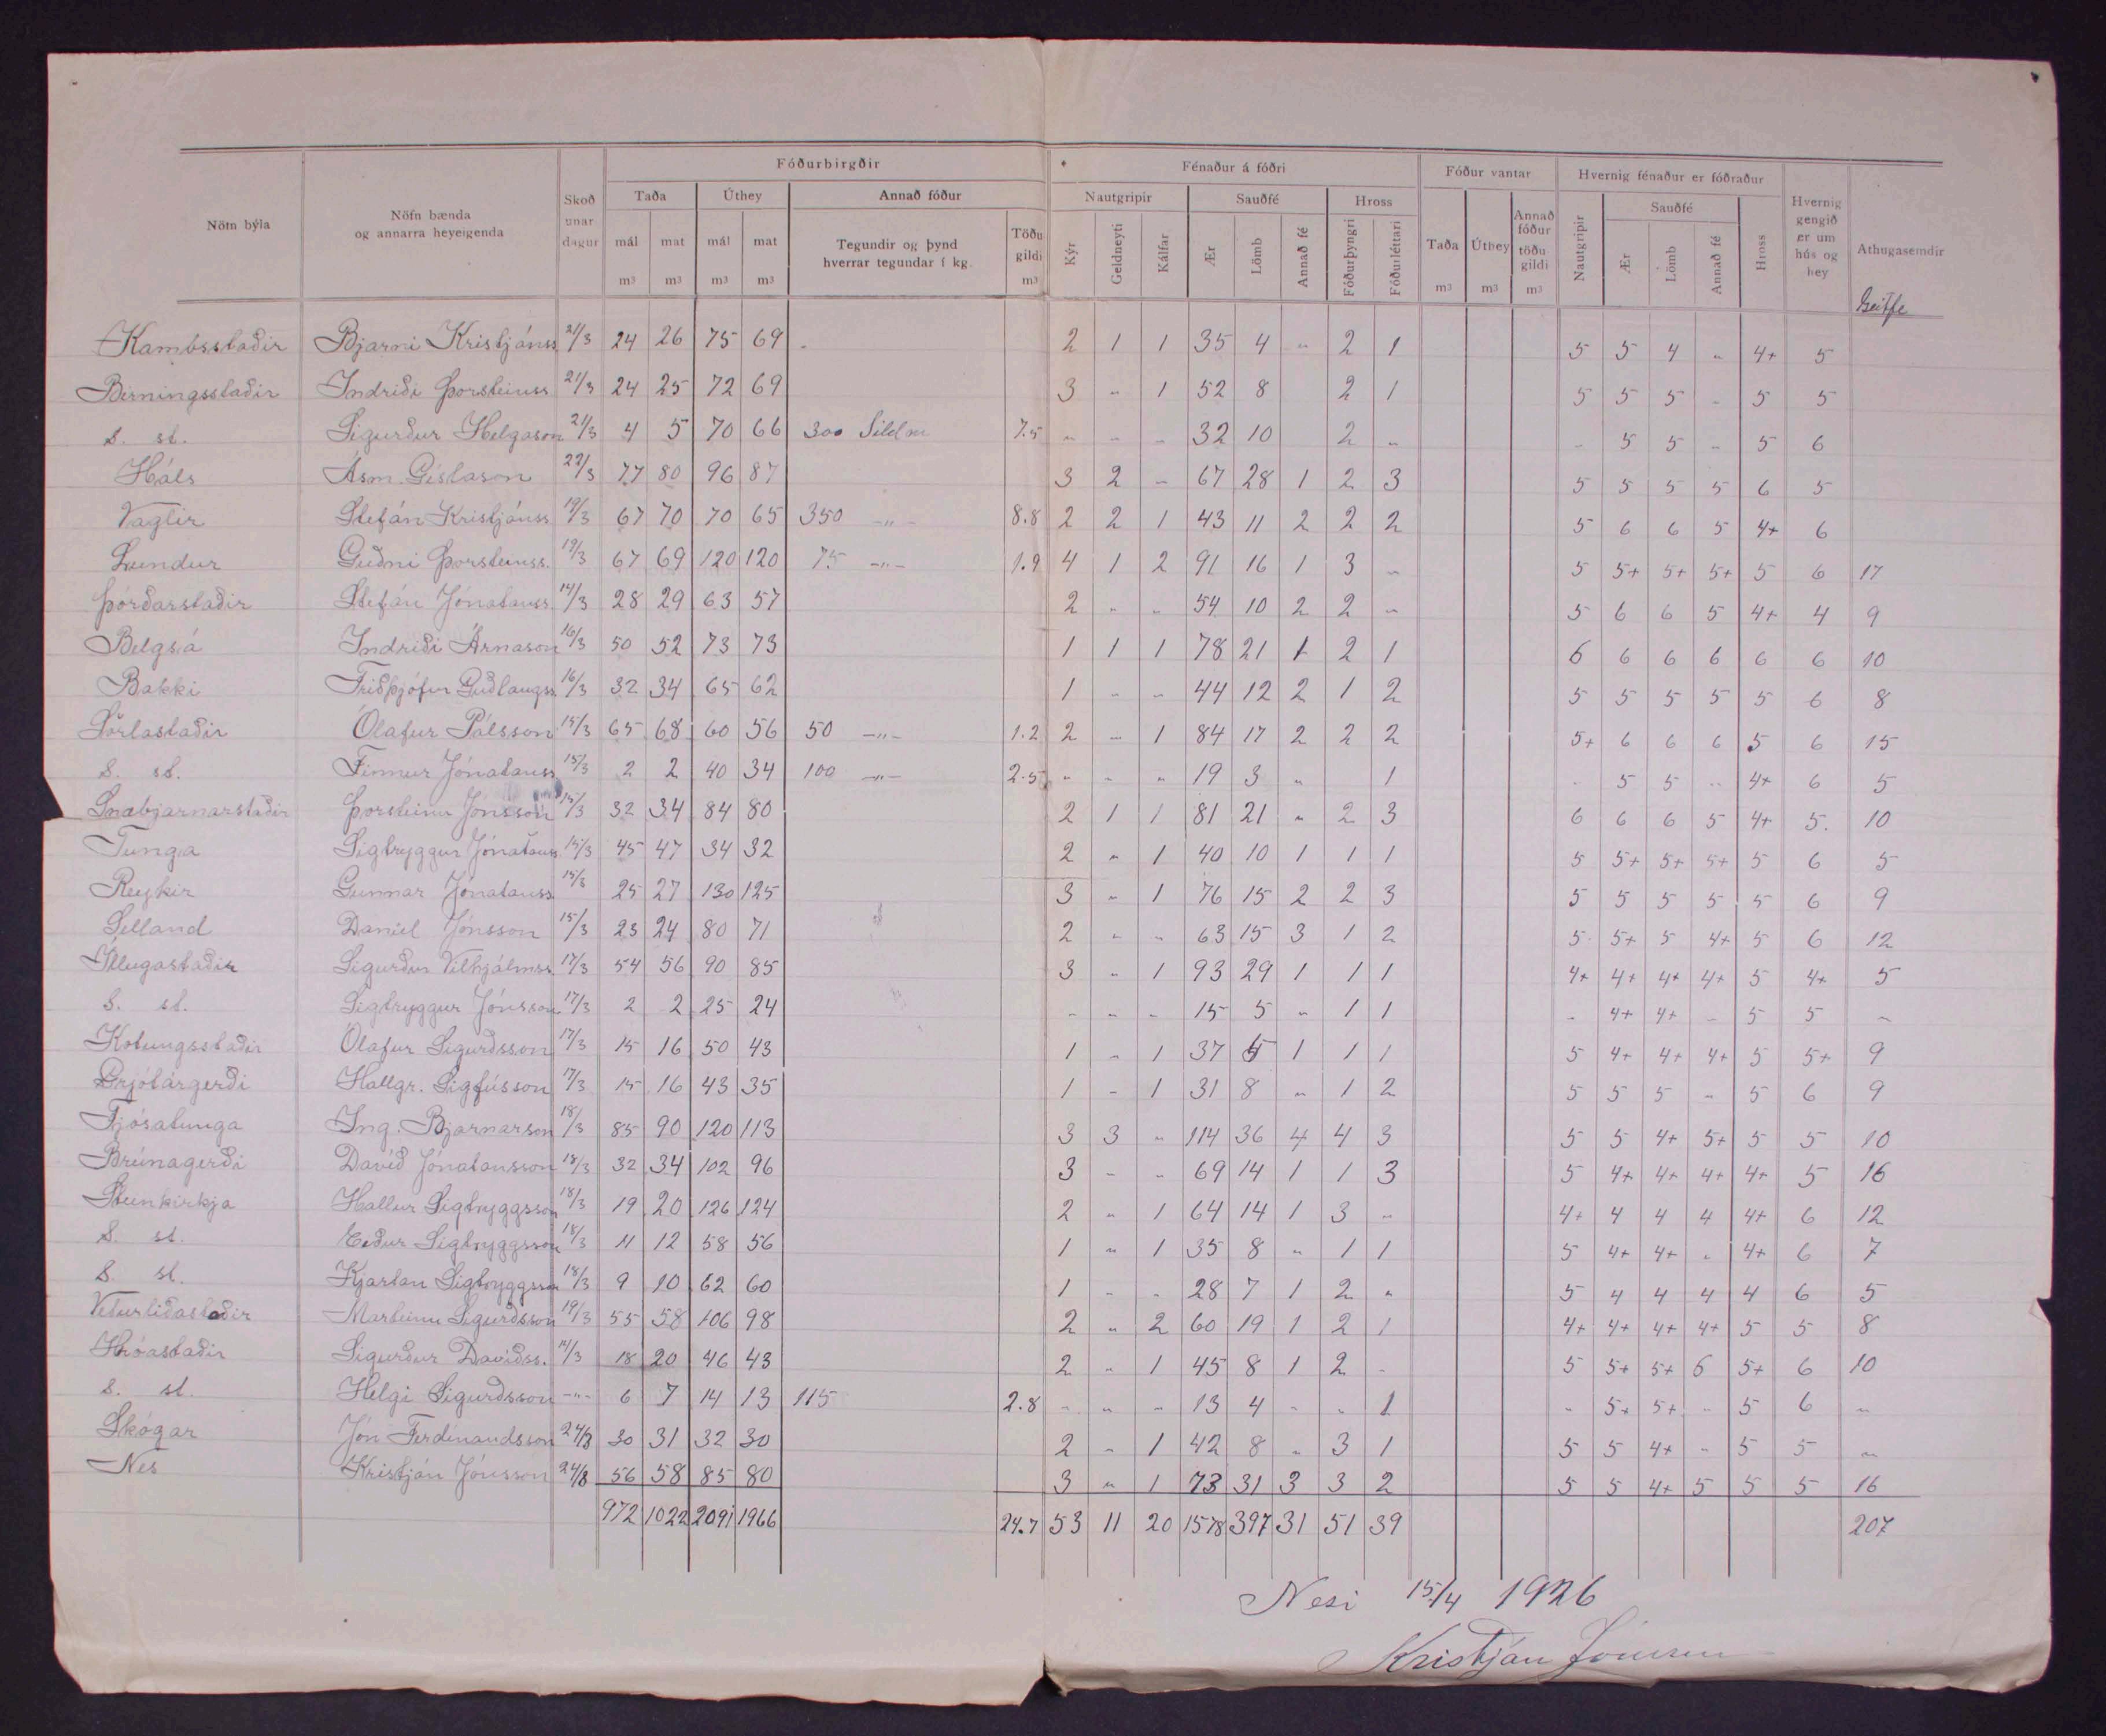 Fóðurbirgðir Fénaður á fóðri Fóður vantar Hvernig fénaður er fóðraður
Nöfn býla Nöfn bænda og annarra heyeigenda Skoðunardagur Taða Úthey Annað fóður Nautgripir Sauðfé Hross Taða Úthey Annað fóður töðugildi Nautgripir Sauðfé Hross Hvernig gengið er um hús og hey Athugasemdir
mál mat mál mat Tegundir og þynd hverrar tegundar í kg. Töðugildi Kýr Geldneyti Kálfar Ær Lömb Annað fé Fóðurþyngri Fóðurléttari Ær Lömb Annað fé
m³ m³ m³ m³ m³ m³ m³ m³
Geitfé
Kambsstaðir Bjarni Kristjánss 21/3 24 26 75 69 - 2 1 1 35 4 „ 2 1 5 5 4 „ 4+ 5
Birningsstaðir Indriði Þorsteinss 21/3 24 25 72 69 3 „ 1 52 8 2 1 5 5 5 - 5 5
S. st. Sigurður Helgason 21/3 4 5 70 66 300 Síldm 7.5 „ - - 32 10 2 „ - 5 5 - 5 6
Háls Ásm. Gíslason 22/3 77 80 96 87 3 2 - 67 28 1 2 3 5 5 5 5 6 5
Vaglir Stefán Kristjánss 19/3 67 70 70 65 350 -„- 8.8 2 2 1 43 11 2 2 2 5 6 6 5 4+ 6
Lundur Guðni Þorsteinss. 19/3 67 69 120 120 75 -„- 1.9 4 1 2 91 16 1 3 „ 5 5+ 5+ 5+ 5 6 17
Þórðarstaðir Stefán Jónatanss. 14/3 28 29 63 57 2 „ „ 54 10 2 2 „ 5 6 6 5 4+ 4 9
Belgsá Indriði Árnason 16/3 50 52 73 73 1 1 1 78 21 1 2 1 6 6 6 6 6 6 10
Bakki Friðþjófur Guðlaugss 16/3 32 34 65 62 1 - - 44 12 2 1 2 5 5 5 5 5 6 8
Sörlastaðir Ólafur Pálsson 15/3 65 68 60 56 50 -„- 1.2 2 - 1 84 17 2 2 2 5+ 6 6 6 5 6 15
S. st. Finnur Jónatanss 15/3 2 2 40 34 100 -„- 2.5 „ „ „ 19 3 „ 1 - 5 5 - 4+ 6 5
Snæbjarnarstaðir Þorsteinn Jónsson 15/3 32 34 84 80 2 1 1 81 21 „ 2 3 6 6 6 5 4+ 5. 10
Tunga Sigtryggur Jónatanss 15/3 45 47 34 32 2 „ 1 40 10 1 1 1 5 5+ 5+ 5+ 5 6 5
Reykir Gunnar Jónatanss 15/3 25 27 130 125 3 „ 1 76 15 2 2 3 5 5 5 5 5 6 9
Selland Daníel Jónsson 15/3 23 24 80 71 2 - - 63 15 3 1 2 5 5+ 5 4+ 5 6 12
Illugastaðir Sigurður Vilhjálmss 17/3 54 56 90 85 3 „ 1 93 29 1 1 1 4+ 4+ 4+ 4+ 5 4+ 5
S. st. Sigtryggur Jónsson 17/3 2 2 25 24 - - - 15 5 „ 1 1 - 4+ 4+ - 5 5 -
Kotungsstaðir Ólafur Sigurðsson 17/3 15 16 50 43 1 - 1 37 5 1 1 1 5 4+ 4+ 4+ 5 5+ 9
Grjótárgerði Hallgr. Sigfússon 17/3 15 16 43 35 1 - 1 31 8 „ 1 2 5 5 5 „ 5 6 9
Fjósatunga Ing. Bjarnarson 18/3 85 90 120 113 3 3 „ 114 36 4 4 3 5 5 4+ 5+ 5 5 10
Brúnagerði Davíð Jónatansson 18/3 32 34 102 96 3 - - 69 14 1 1 3 5 4+ 4+ 4+ 4+ 5 16
Steinkirkja Hallur Sigtryggsson 18/3 19 20 126 124 2 „ 1 64 14 1 3 - 4+ 4 4 4 4+ 6 12
S. st. Eiður Sigtryggsson 18/3 11 12 58 56 1 „ 1 35 8 „ 1 1 5 4+ 4+ „ 4+ 6 7
S. st. Kjartan Sigtryggsson 18/3 9 10 62 60 1 - - 28 7 1 2 „ 5 4 4 4 4 6 5
Veturliðastaðir Marteinn Sigurðsson 19/3 55 58 106 98 2 „ 2 60 19 1 2 1 4+ 4+ 4+ 4+ 5 5 8
Hróastaðir Sigurður Davíðss. 14/3 18 20 46 43 2 „ 1 45 8 1 2 - 5 5+ 5+ 6 5+ 6 10
S. st. Helgi Sigurðsson -„- 6 7 14 13 115 2.8 - „ - 13 4 - - 1 - 5+ 5+ - 5 6 „
Skógar Jón Ferdinandsson 24/3 30 31 32 30 2 - 1 42 8 „ 3 1 5 5 4+ - 5 5 „
Nes Kristján Jónsson 24/3 56 58 85 80 3 „ 1 73 31 3 3 2 5 5 4+ 5 5 5 16
972 1022 2091 1966 24.7 53 11 20 1578 397 31 51 39 207
Nesi 15/4 1926
Kristján Jónsson